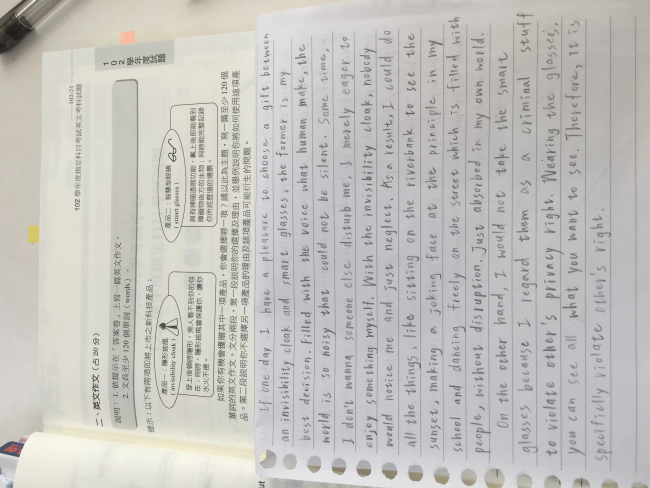 102學年度試題
102 學年度指定科目考試英文考科試題
二、英文作文（占20分）
說明：1. 依提示在「答案卷」上寫一篇英文作文。
2. 文長至少120個單詞（words）。
提示：以下有兩項即將上市之新科技產品：
產品一：隱形披風
(invisibility cloak)
穿上後頓時隱形，旁人看不到你的存
在；同時，隱形披風會保護你，讓你
水火不侵。
產品二：智慧型眼鏡
(smart glasses)
具有掃瞄透視功能，戴上後即能看到
障礙物後方的生物；同時能完整記錄
你所經歷過的場景。
如果你有機會獲贈其中一項產品，你會選擇哪一項？請以此為主題，寫一篇至少120個
單詞的英文作文。文分兩段，第一段說明你的選擇及理由，並舉例說明你將如何使用這項產
品。第二段說明你不選擇另一項產品的理由及該項產品可能衍生的問題。
If one day I have a pleasure to choose a gift between
an invisibility cloak and smart glasses, the former is my
best decision. Filled with the voice what human make, the
world is so noisy that could not be silent. Some time,
I don't wanna someone else disturb me, I merely eager to
enjoy something myself. With the invisibility cloak, nobody
would notice me and just neglect. As a result, I could do
all the things, like sitting on the riverbank to see the
sunset, making a joking face at the principle in my
school and dancing freely on the sweet which is filled with
people, without disruption. Just absorbed in my own world.
On the other hand, I would not take the smart
glasses because I regard them as a criminal stuff
to violate other's privacy right. Wearing the glasses,
you can see all what you want to see. Therefore, it is
specificlly violate other's right